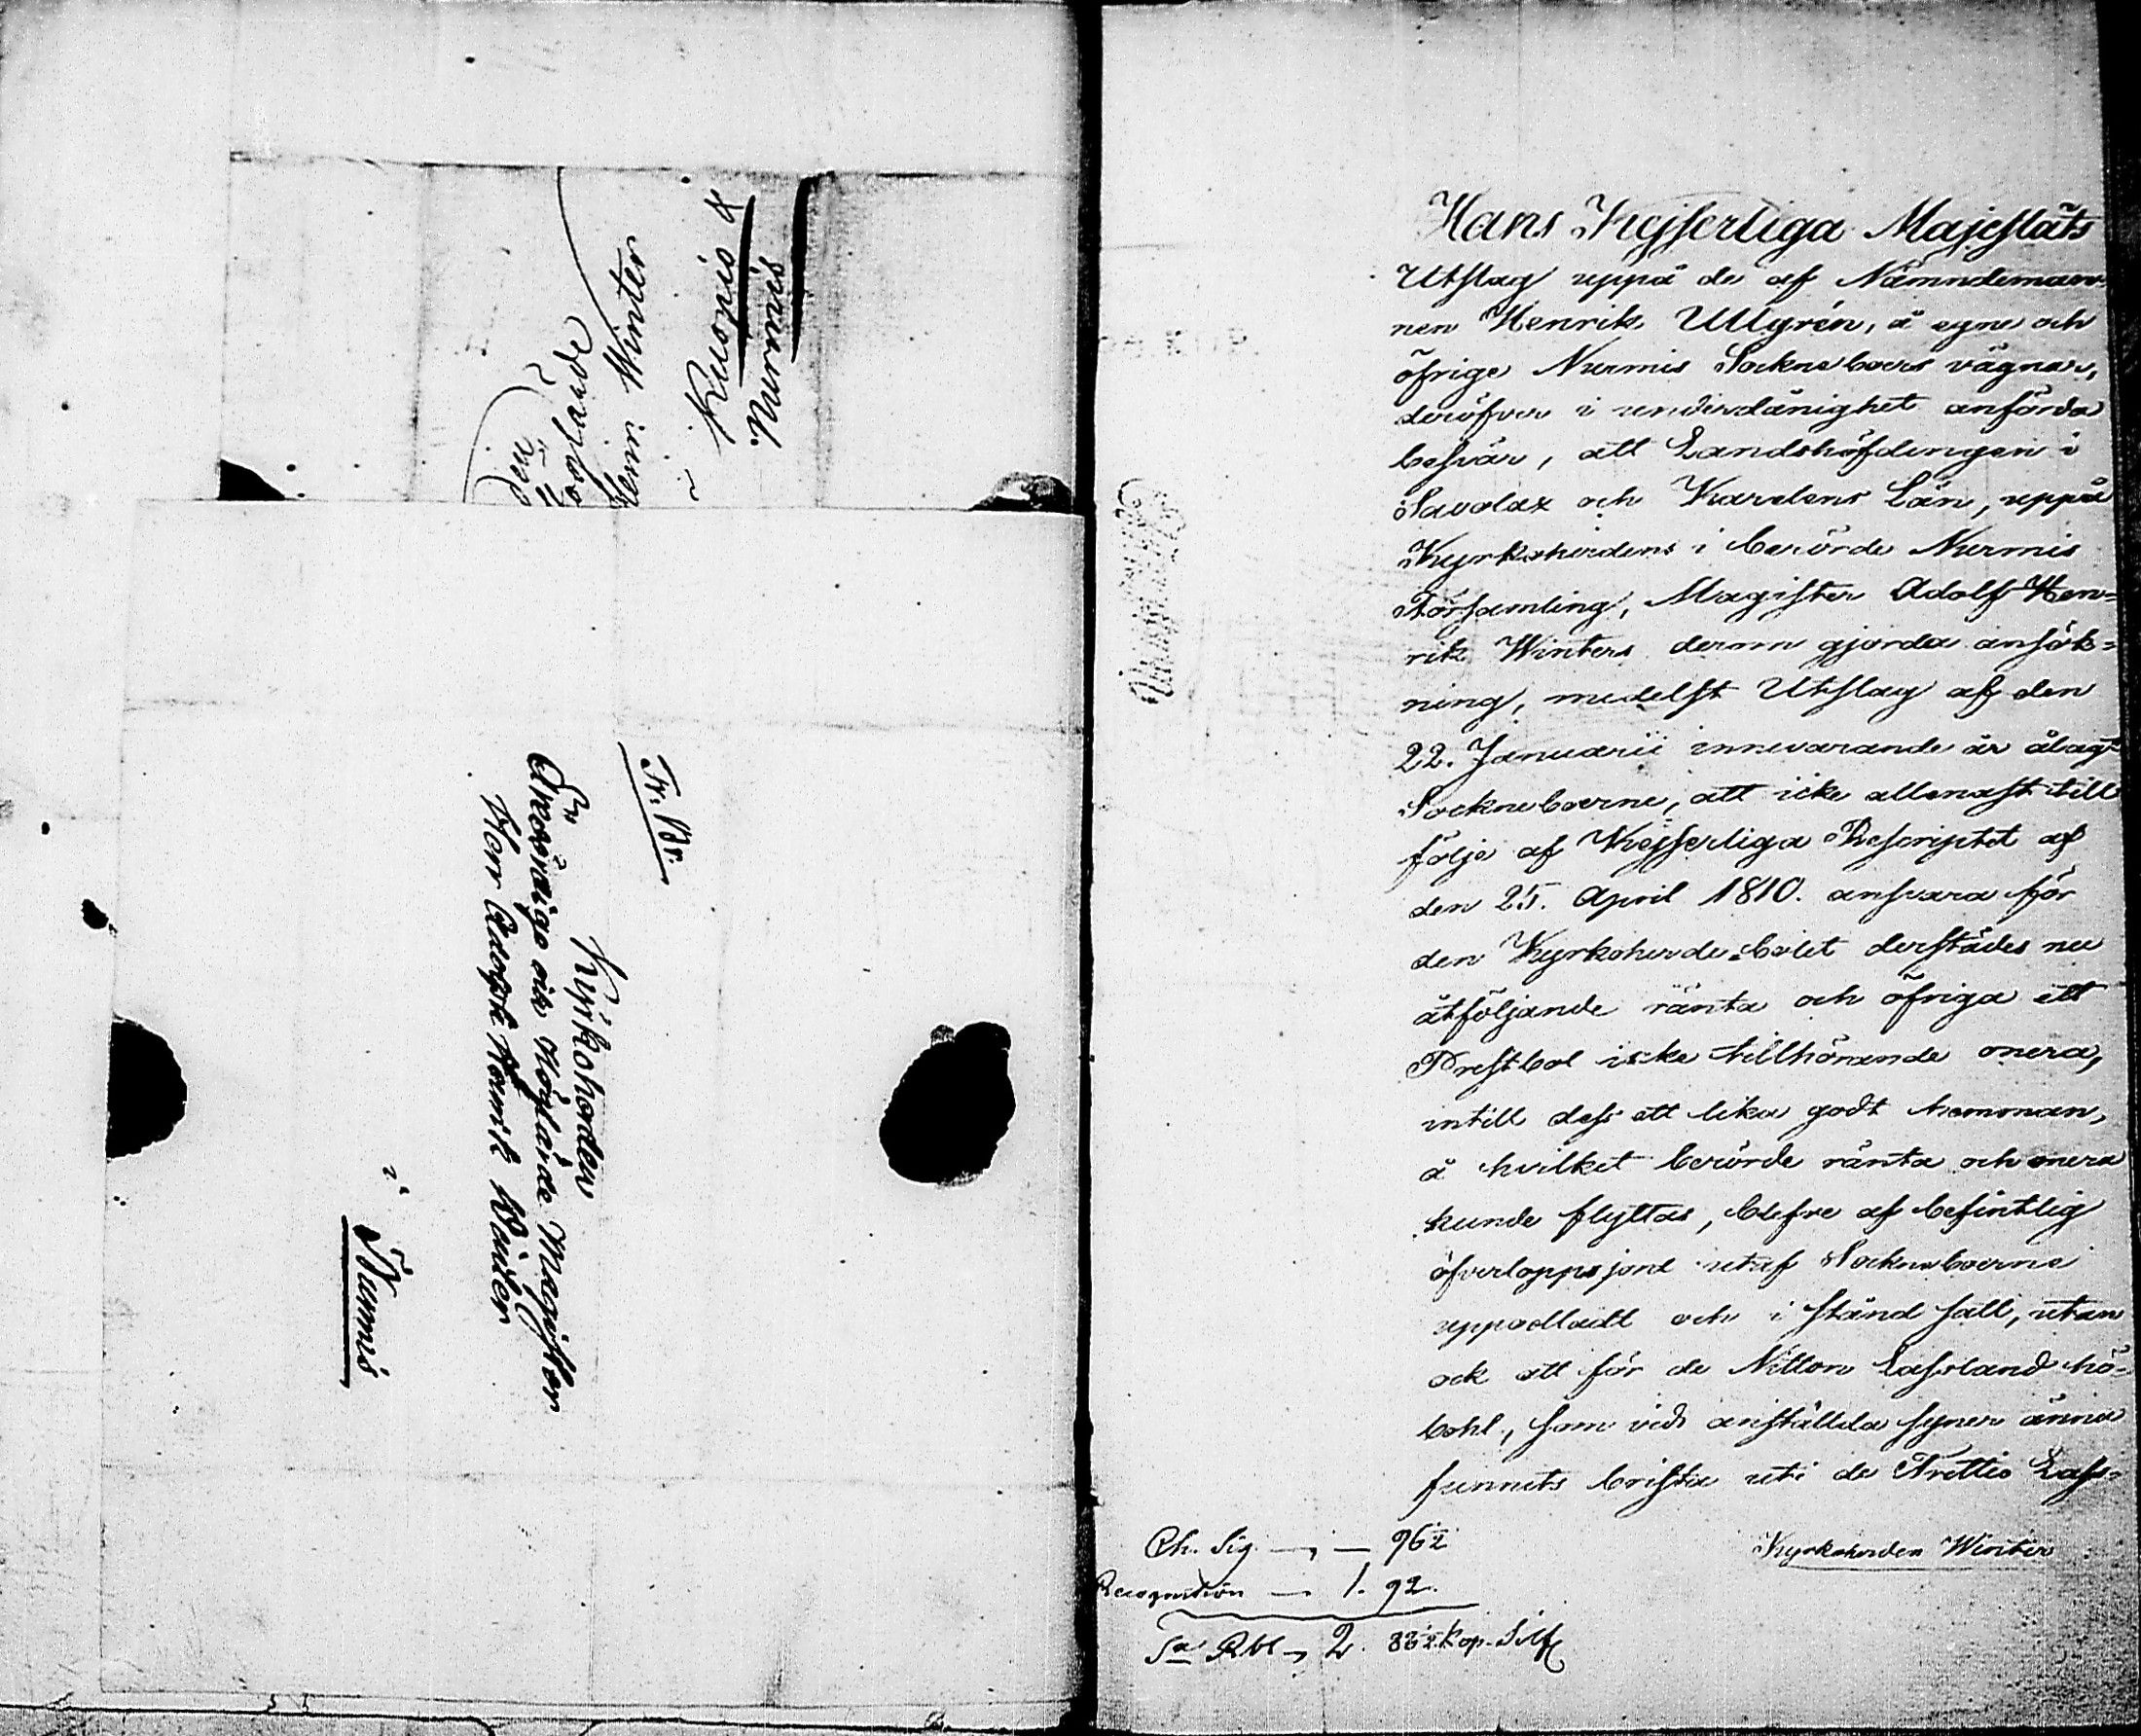 Höglärde
Herr Winter
Kuopio &
Nurmis
Fr. Br.
Kyrkoherden
Ährevördige och Höglärde Magister
Herr Adolph Henrik Winter
i
Nurmis
Hans Kejserliga Majestäts
Utslag uppå de af Nämndeman-
nen Henrik Ullgrén, å egne och
öfrige Nurmis Sockneboers vägnar,
deröfver i underdånighet anförda
besvär, att Landshöfdingen i
Savolax och Karelens Län, uppå
Kyrkoherdens i berörde Nurmis
Församling, Magister Adolf Hen=
rik Winters derom gjorda ansök=
ning, medelst Utslag af den
22. Januarii innevarande år ålagt
Sockneboerne, att icke allenast till
följe af Kejserliga Rescriptet af
den 25. April 1810. ansvara för
den Kyrkoherde-bolet derstädes nu
åtföljande ränta och öfriga ett
Prestbol icke tillhörande onera,
intill dess ett lika godt hemman,
å hvilket berörde ränta och onera
kunde flyttas, blefve af befintlig
öfverloppsjord utaf Sockneboerne
uppodladt och i stånd satt, utan
ock att för de Nitton Lassland hö=
bohl, som vid anställda syner ännu
funnits brista uti de Trettio Lass=
Kyrkoherden Winter
Ch. Sig. — „ — 96½
Recognition — 1. 92.
Sa Rbl „ 2. 88½ kop. Silf